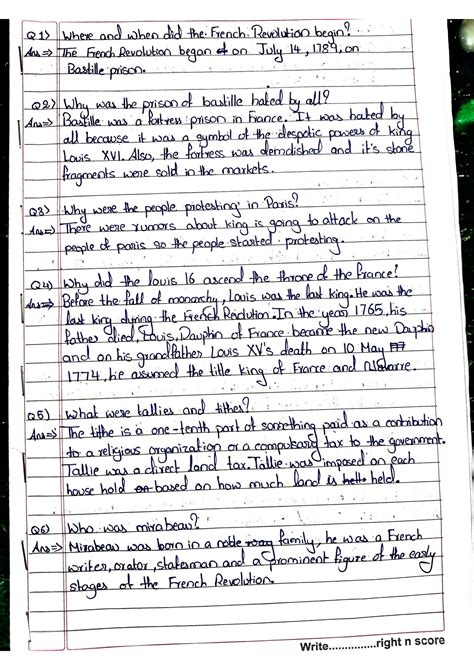 Q1) Where and when did the French Revolution begin?
Ans⇒ The French Revolution began on July 14, 1789, on
Bastille prison.
Q2) Why was the prison of bastille hated by all?
Ans⇒ Bastille was a fortress prison in France. It was hated by
all because it was a symbol of the despotic powers of king
Louis XVI. Also, the fortress was demolished and it's stone
fragments were sold in the markets.
Q3) Why were the people protesting in Paris?
Ans⇒ There were rumors about king is going to attack on the
people of paris so the people started protesting.
Q4) Why did the louis 16 ascend the throne of the france?
Ans⇒ Before the fall of monarchy, Louis was the last king. He was the
last king during the French Revolution. In the year 1765, his
father died, Louis, Dauphin of France became the new Dauphin
and on his grandfather Louis XV's death on 10 May
1774, he assumed the title king of France and
Q5) What were tallies and tithes?
Ans⇒ The tithe is a one-tenth part of something paid as a contribution
to a religious organization or a compulsory tax to the government.
Tallie was a direct land tax. Tallie was imposed on each
house hold based on how much land is held.
Q6) Who was mirabeau?
Ans⇒ Mirabeau was born in a noble family, he was a French
writer, orator, statesman and a prominent figure of the early
stages of the French Revolution.
Write...............right n score